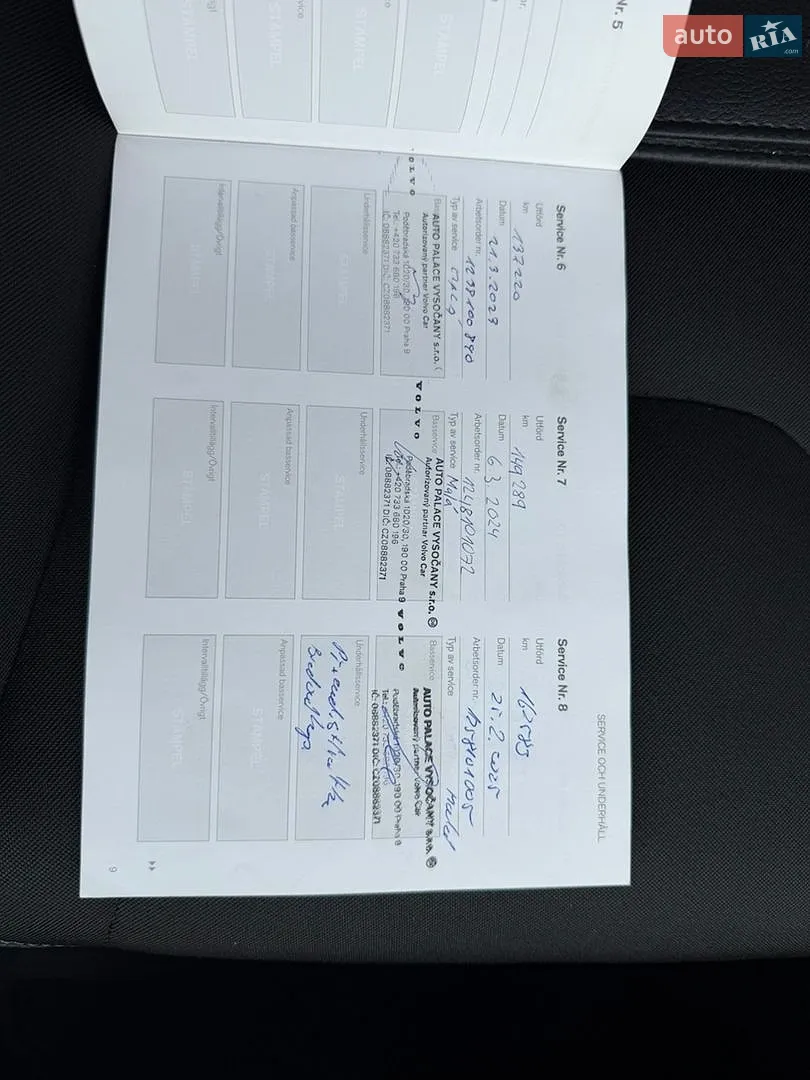 auto RIA
.com
Nr. 5
STÄMPEL
STÄMPEL
STÄMPEL
STÄMPEL
SERVICE OCH UNDERHÅLL
Service Nr. 6
Utförd
km 137220
Datum 21.3.2023
Arbetsorder nr.
Typ av service
VOLVO
AUTO PALACE VYSOČANY s.r.o.
Autorizovaný partner Volvo Car
Poděbradská 1020/30, 190 00 Praha 9
Tel.: +420 733 680 196
IČ: 08882371 DIČ: CZ08882371
Underhållsservice
STÄMPEL
Anpassad basservice
STÄMPEL
Intervalltillägg/Övrigt
STÄMPEL
Service Nr. 7
Utförd
km 149289
Datum 6.3.2024
Arbetsorder nr. 1248101072
Typ av service Malá
Basservice
VOLVO
AUTO PALACE VYSOČANY s.r.o.
Autorizovaný partner Volvo Car
Poděbradská 1020/30, 190 00 Praha 9
Tel.: +420 733 680 196
IČ: 08882371 DIČ: CZ08882371
Underhållsservice
STÄMPEL
Anpassad basservice
STÄMPEL
Intervalltillägg/Övrigt
STÄMPEL
Service Nr. 8
Utförd
km
Datum 25.2.2025
Arbetsorder nr.
Typ av service
Basservice
VOLVO
AUTO PALACE VYSOČANY s.r.o.
Autorizovaný partner Volvo Car
Poděbradská 1020/30, 190 00 Praha 9
IČ: 08882371 DIČ: CZ08882371
Underhållsservice
Anpassad basservice
STÄMPEL
Intervalltillägg/Övrigt
STÄMPEL
9